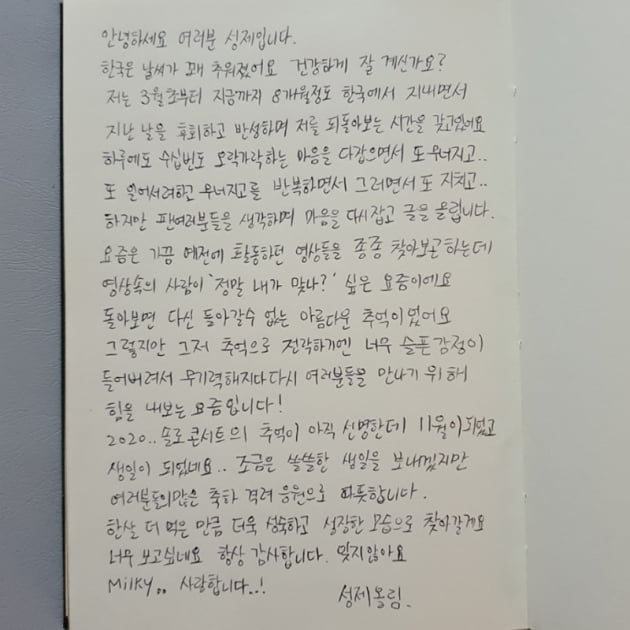 안녕하세요 여러분 성제입니다.
한국은 날씨가 꽤 추워졌어요 건강하게 잘 계신가요?
저는 3월초부터 지금까지 8개월정도 한국에서 지내면서
지난 날을 후회하고 반성하며 저를 되돌아보는 시간을 갖고있네요
하루에도 수십번도 오락가락하는 마음을 다잡으면서 또 무너지고..
또 일어서려하고 무너지고를 반복하면서 그러면서 또 지치고..
하지만 팬여러분들을 생각하며 마음을 다시잡고 글을 올립니다.
요즘은 가끔 예전에 활동하던 영상들을 종종 찾아보곤하는데
영상속의 사람이 '정말 내가 맞나?' 싶은 요즘이에요
돌아보면 다신 돌아갈수 없는 아름다운 추억이었어요
그렇지만 그저 추억으로 전락하기엔 너무 슬픈감정이
들어버려서 무기력해지다 다시 여러분들을 만나기 위해
힘을 내보는 요즘입니다!
2020.. 솔로콘서트의 추억이 아직 선명한데 11월이되었고
생일이 되었네요.. 조금은 쓸쓸한 생일을 보내겠지만
여러분들의많은 축하 격려 응원으로 따듯합니다.
한살 더 먹은 만큼 더욱 성숙하고 성장한 모습으로 찾아갈게요
너무 보고싶네요 항상 감사합니다. 잊지않아요
Milky.. 사랑합니다..!
성제올림.